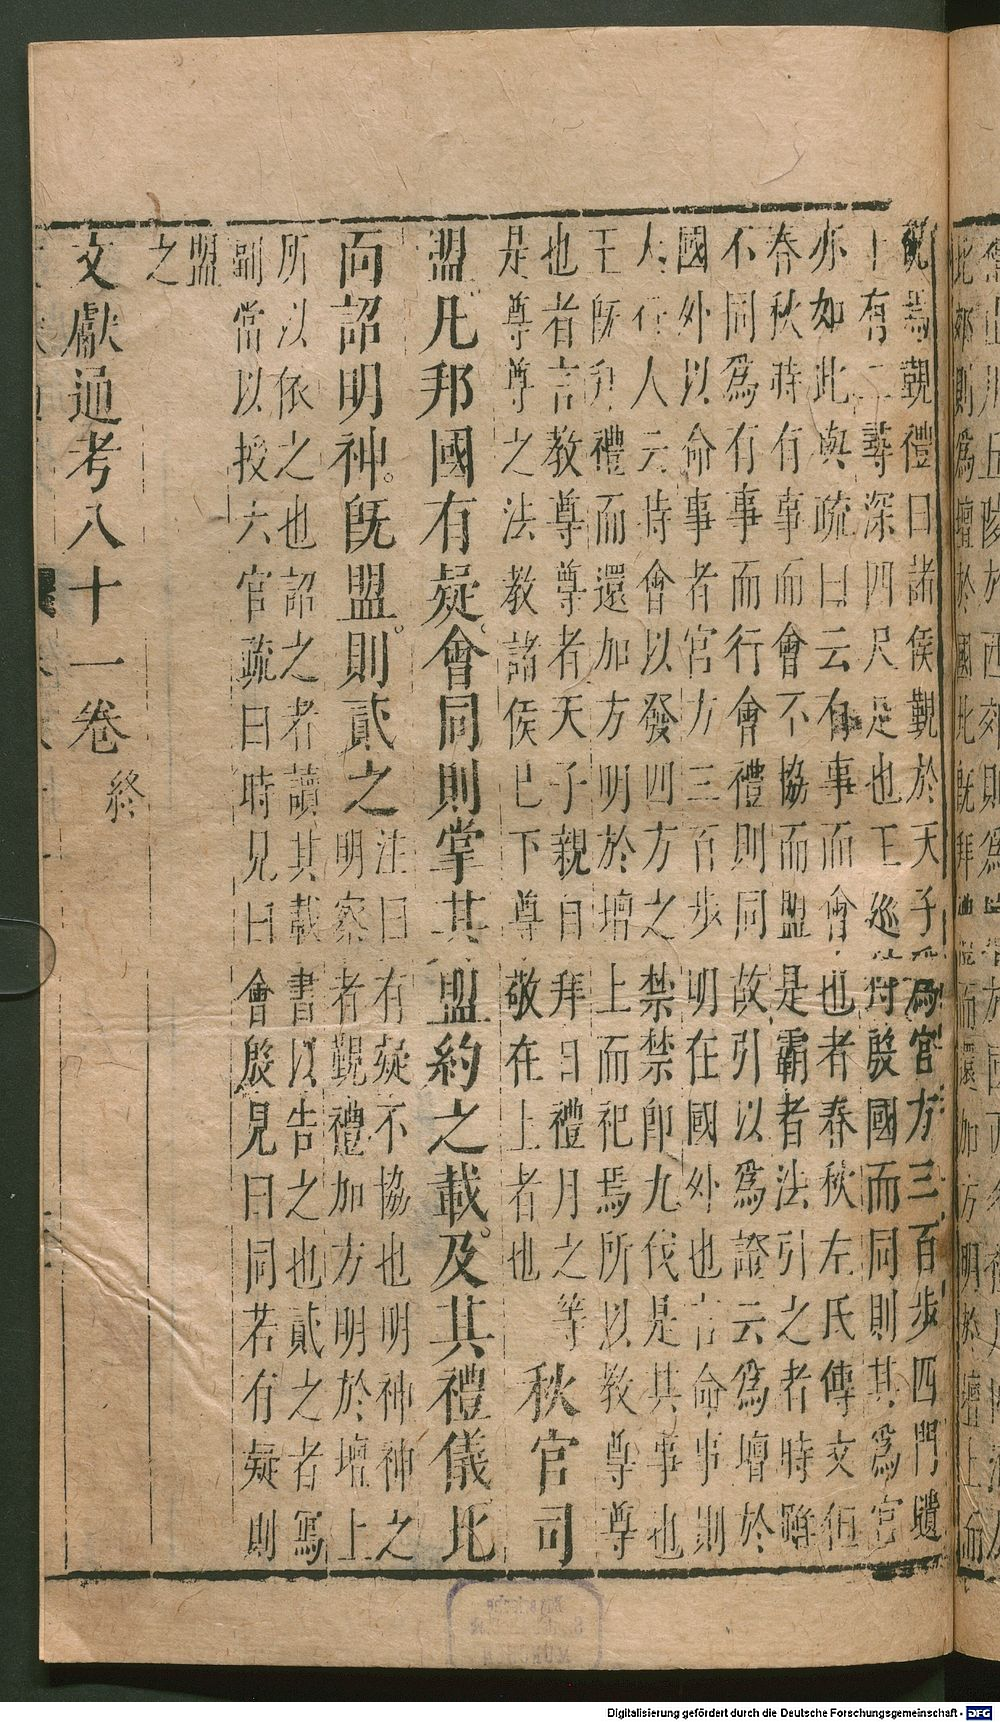 此郊則爲壇於國北既拜禮而還加方明於壇上而
說焉覲禮曰諸侯覲於天子爲宮方三百步四門壝
十有二尋深四尺是也王巡狩殷國而同則其爲宮
亦如此與疏曰云有事而會也者春秋左氏傳文但
春秋時有事而會不協而盟是霸者法引之者時雖
不同爲有事而行會禮則同故引以爲證云爲壇於
國外以命事者宮方三百步明在國外也言命事則
大行人云時會以發四方之禁禁即九伐是其事也
王既拜禮而還加方明於壇上而祀焉所以教尊尊
也者言教尊尊者天子親自拜日禮月之等
是尊尊之法教諸侯已下尊敬在上者也
秋官司
盟凡邦國有疑會同則掌其盟約之載及其禮儀北
向詔明神。既盟。則貳之
注曰有疑不協也明神神之
明察者覲禮加方明於壇上
所以依之也詔之者讀其載書以告之也貳之者寫
副當以授六官疏曰時見曰會殷見曰同若有疑則
盟
之
文獻通考八十一卷終
Digitalisierung gefördert durch die Deutsche Forschungsgemeinschaft - DFG